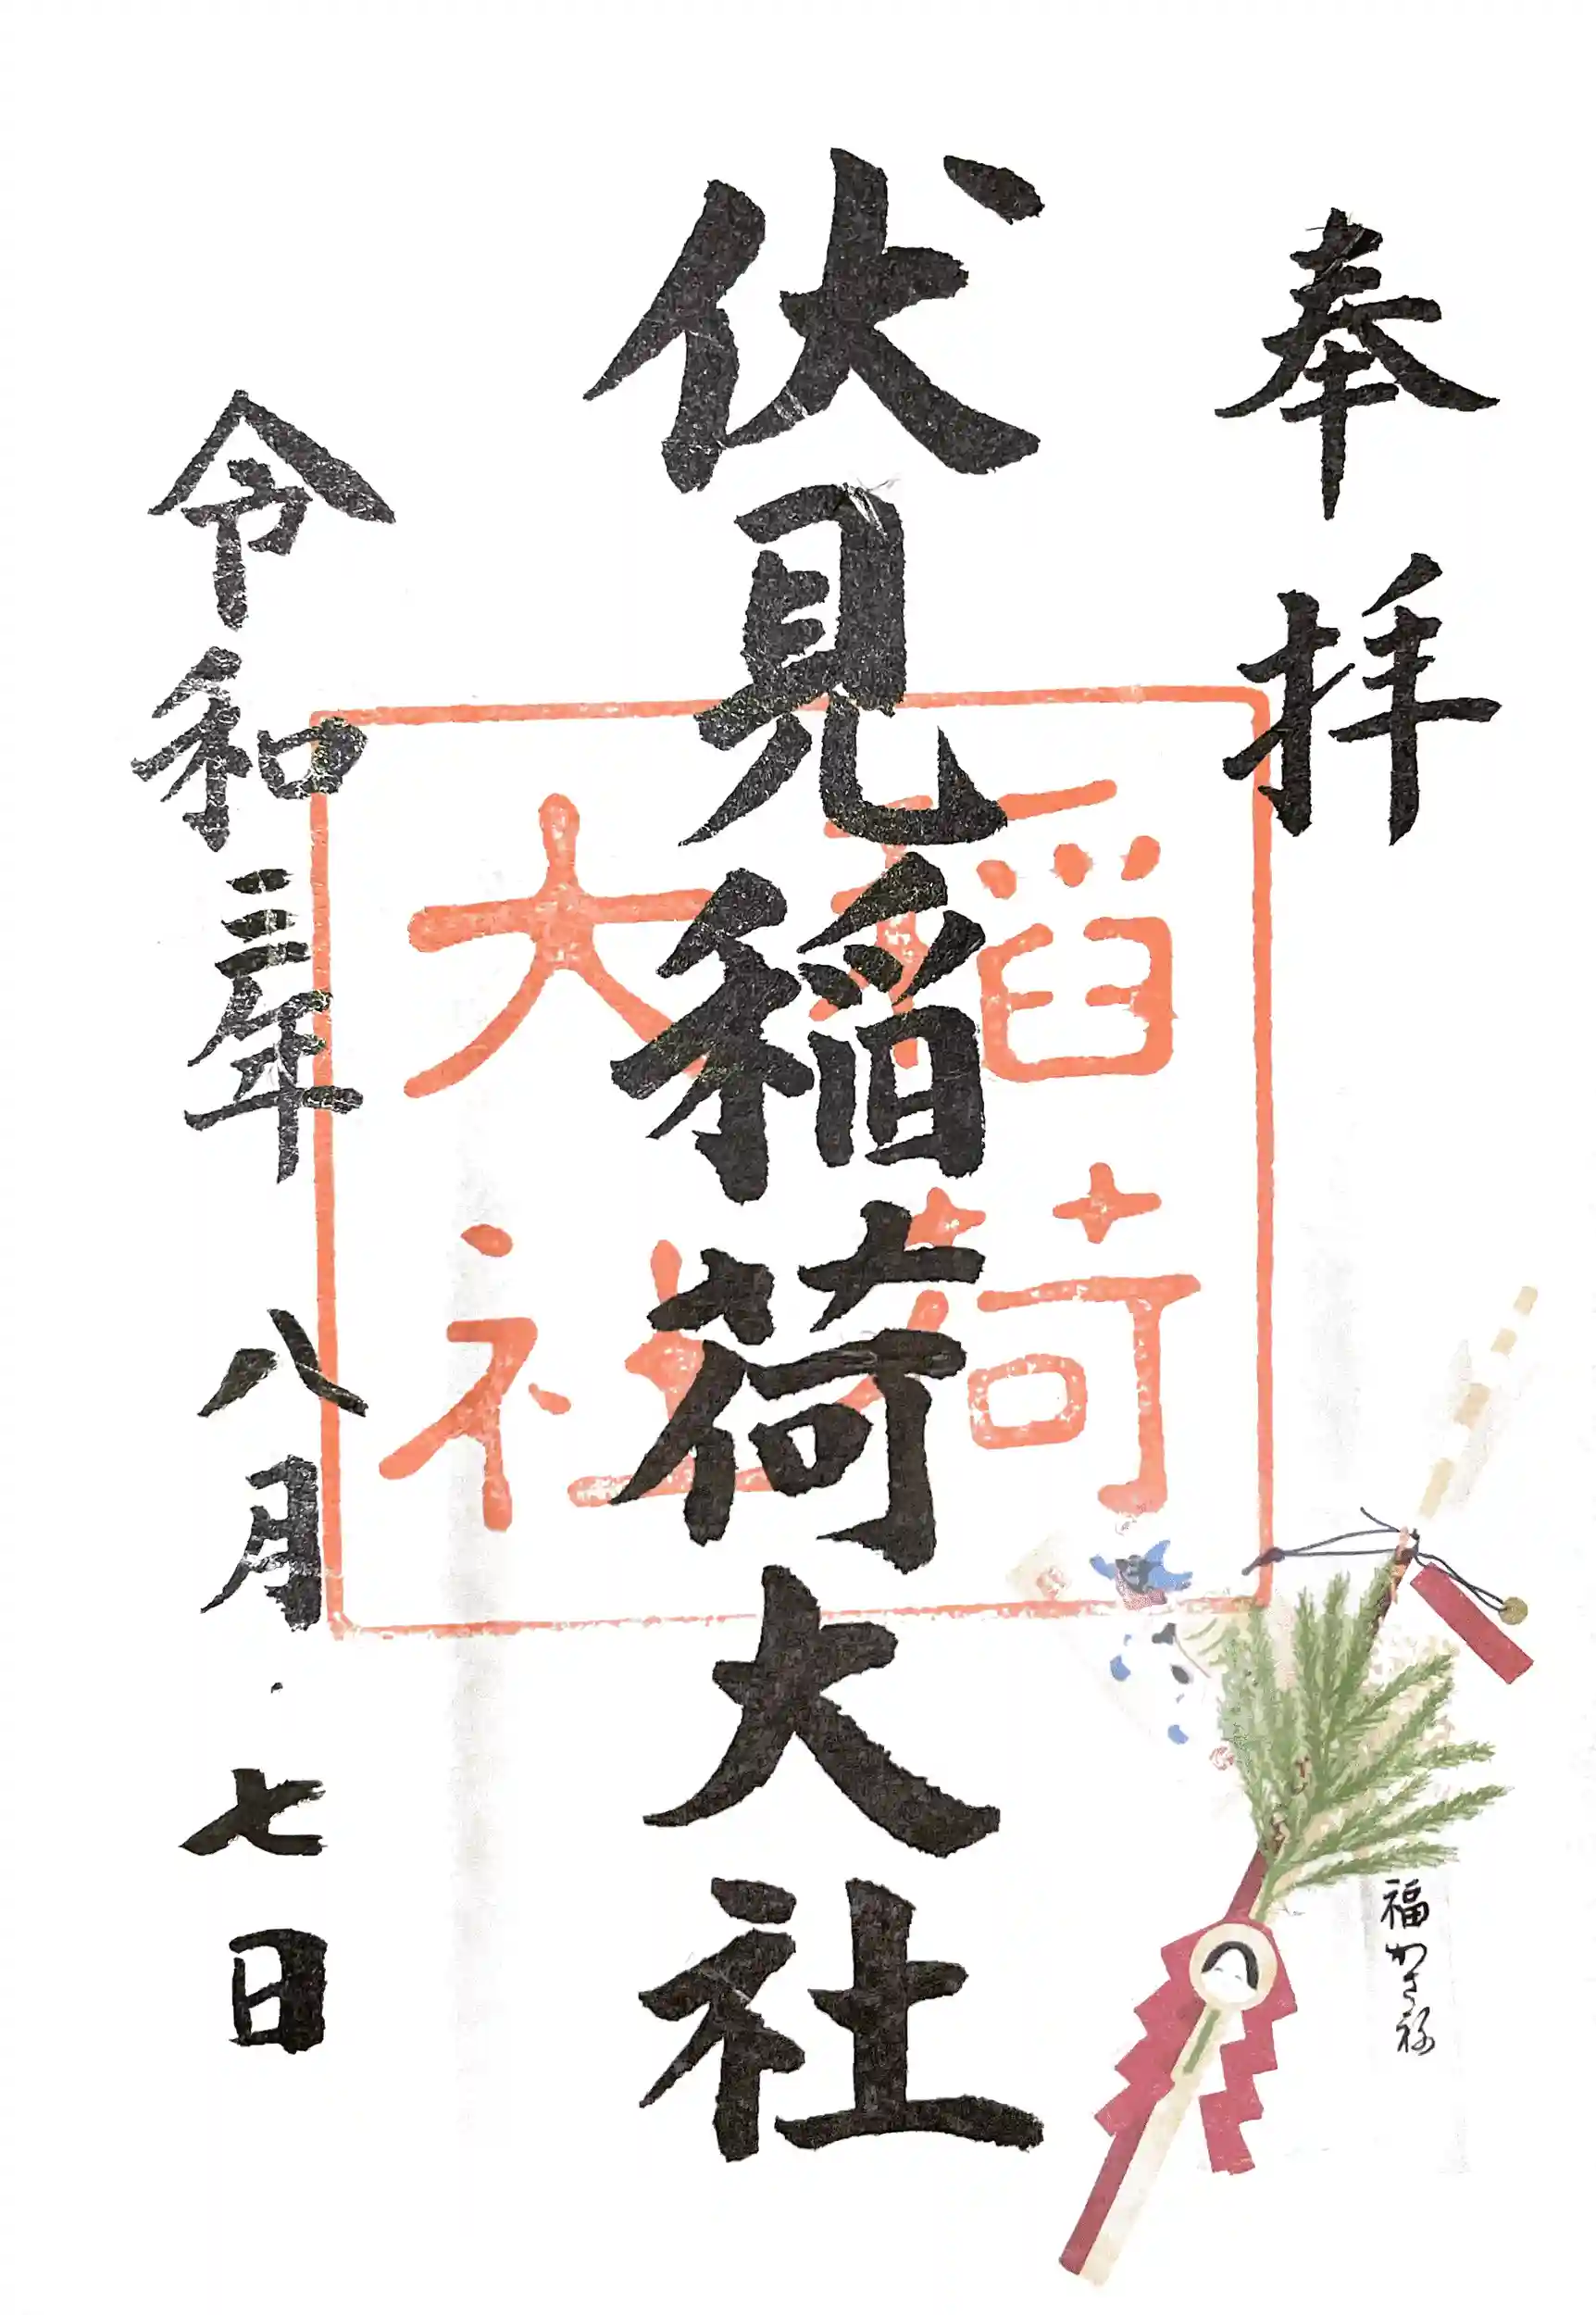 奉拝
伏見稲荷大社
稲荷
大社
令和三年 八月 七日
福かさね